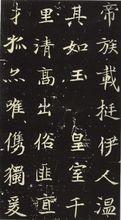 帝族載挺伊人温
其如玉 皇室千
里清高出俗匪直
才孤亦唯儁獨爰